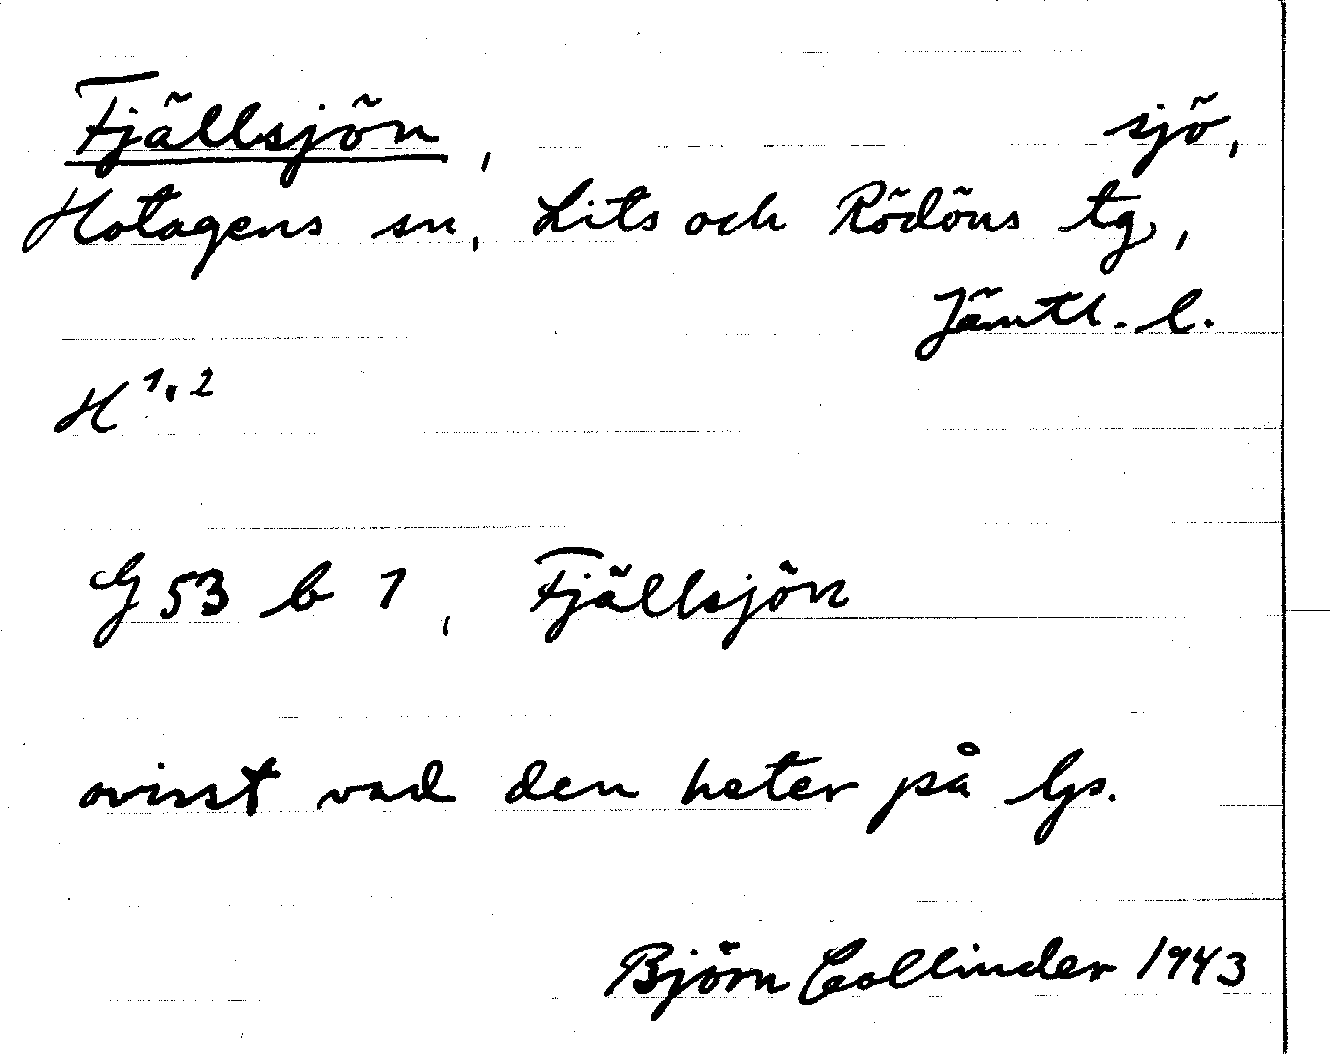 Fjällsjön, sjö,
Hotagens sn, Lits och Rödöns tg,
Jämtl. l.
H 1, 2
G 53 b 1, Fjällsjön
ovisst vad den heter på lps.
Björn Collinder 1943